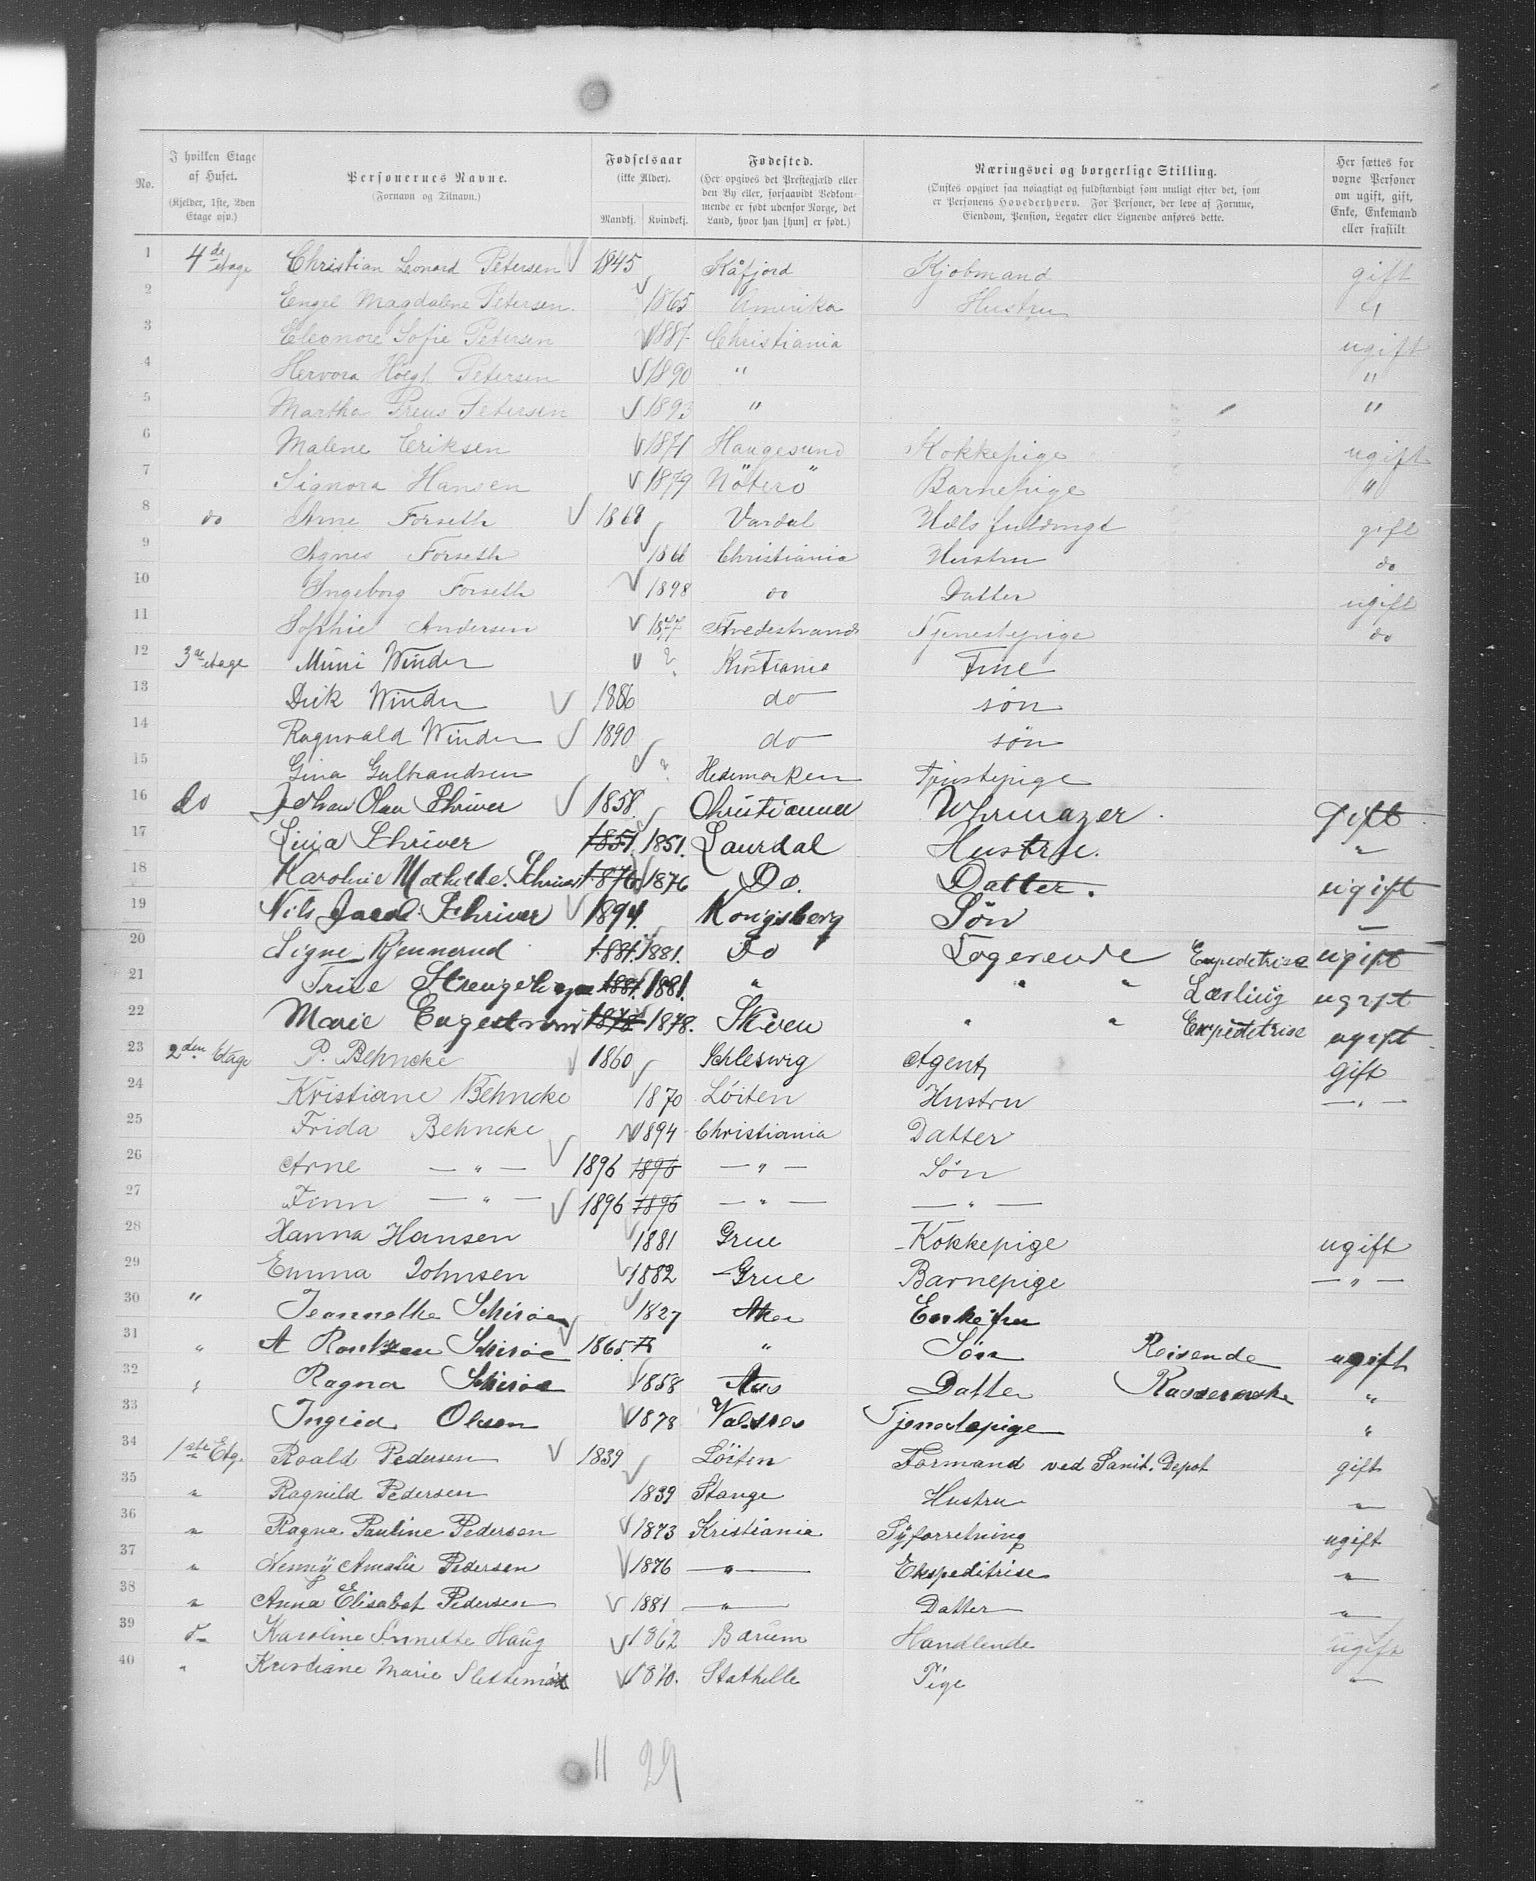 No.
I hvilken Etage af Huset. (Kjelder, 1ste, 2den Etage osv.)
Personernes Navne. (Fornavn og Tilnavn.)
Fødselsaar (ikke Alder). Mandkj. Kvindekj.
Fødested. (Her opgives det Prestegjæld eller den By eller, forsaavidt Vedkommende er født udenfor Norge, det Land, hvor han [hun] er født.)
Næringsvei og borgerlige Stilling. (Ønskes opgivet saa nøiagtigt og fuldstændigt som muligt efter det, som er Personens Hovederhverv. For Personer, der leve af Formue, Eiendom, Pension, Legater eller Lignende anføres dette.
Her sættes for voxne Personer om ugift, gift, Enke, Enkemand eller fraskilt
1 4de etage Christian Leonard Petersen 1845 Kåfjord Kjobmand gift
2 Engel Magdalene Petersen 1865 Amerika Hustru "
3 Eleonore Sofie Petersen 1887 Christiania ugift
4 Hervora Høegh Petersen 1890 " "
5 Martha Preus Petersen 1893 " "
6 Malene Eriksen 1871 Haugesund Kokkepige ugift
7 Signora Hansen 1879 Nöterö Barnepige "
8 do Arne Forseth 1868 Vardal gift
9 Agnes Forseth 1866 Christiania Hustru do
10 Ingeborg Forseth 1898 do Datter ugift
11 Sophie Andersen 1877 Tvedestrand Tjenestepige do
12 3de etage Mimi Winder ? Kristiania Frue
13 Dick Winder 1886 do søn
14 Ragnvald Winder 1890 do søn
15 Gina Gulbrandsen ? Hedemarken Tjenstepige
16 do Johan Olav Schriver 1858 Christiania Uhrmager gift
17 Lina Schriver 1851. 1851. Laurdal Hustru. "
18 Karoline Mathilde Schriver 1876 1876 Do. Datter. ugift
19 Nils Jacob Schriver 1894. Kongsberg Søn —
20 Signe Bjennerud 1881. 1881. Do Logerende Expeditrise ugift
21 Trine 1881. 1881. " " " Lærling ugift
22 Marie Engestrøm 1878 1878. Skien " " Expeditrise ugift
23 2den Etage P. Behncke 1860 Schleswig Agent gift
24 Kristiane Behncke 1870 Løiten Hustru — " —
25 Frida Behncke 1894 Christiania Datter
26 Arne — " — 1896 1896 — " — Søn
27 Finn — " — 1896 1896 — " — — " —
28 Hanna Hansen 1881 Grue Kokkepige ugift
29 Emma Johnsen 1882 Grue Barnepige — " —
30 " Jeannethe Schirøe 1827 Aker Enkefru
31 " A Schirøe 1865. " Søn Reisende ugift
32 " Ragna Schirøe 1858 Aas Datter "
33 Ingrid Olsen 1878 Valdres Tjenestepige "
34 1ste Etg. Roald Pedersen 1839 Löiten Formand ved Sanit. Depot gift
35 " Ragnild Pedersen 1839 Stange Hustru "
36 " Ragna Pauline Pedersen 1873 Kristiania Syforretning ugift
37 " Nenny Amalie Pedersen 1876 — " — Ekspeditrise "
38 " Anna Elisabet Pedersen 1881 — " — Datter "
39 Karoline Annette Haug 1862 Bærum Handlende. ugift
40 " Kristiane Marie 1870. Stathelle Pige "
11 29